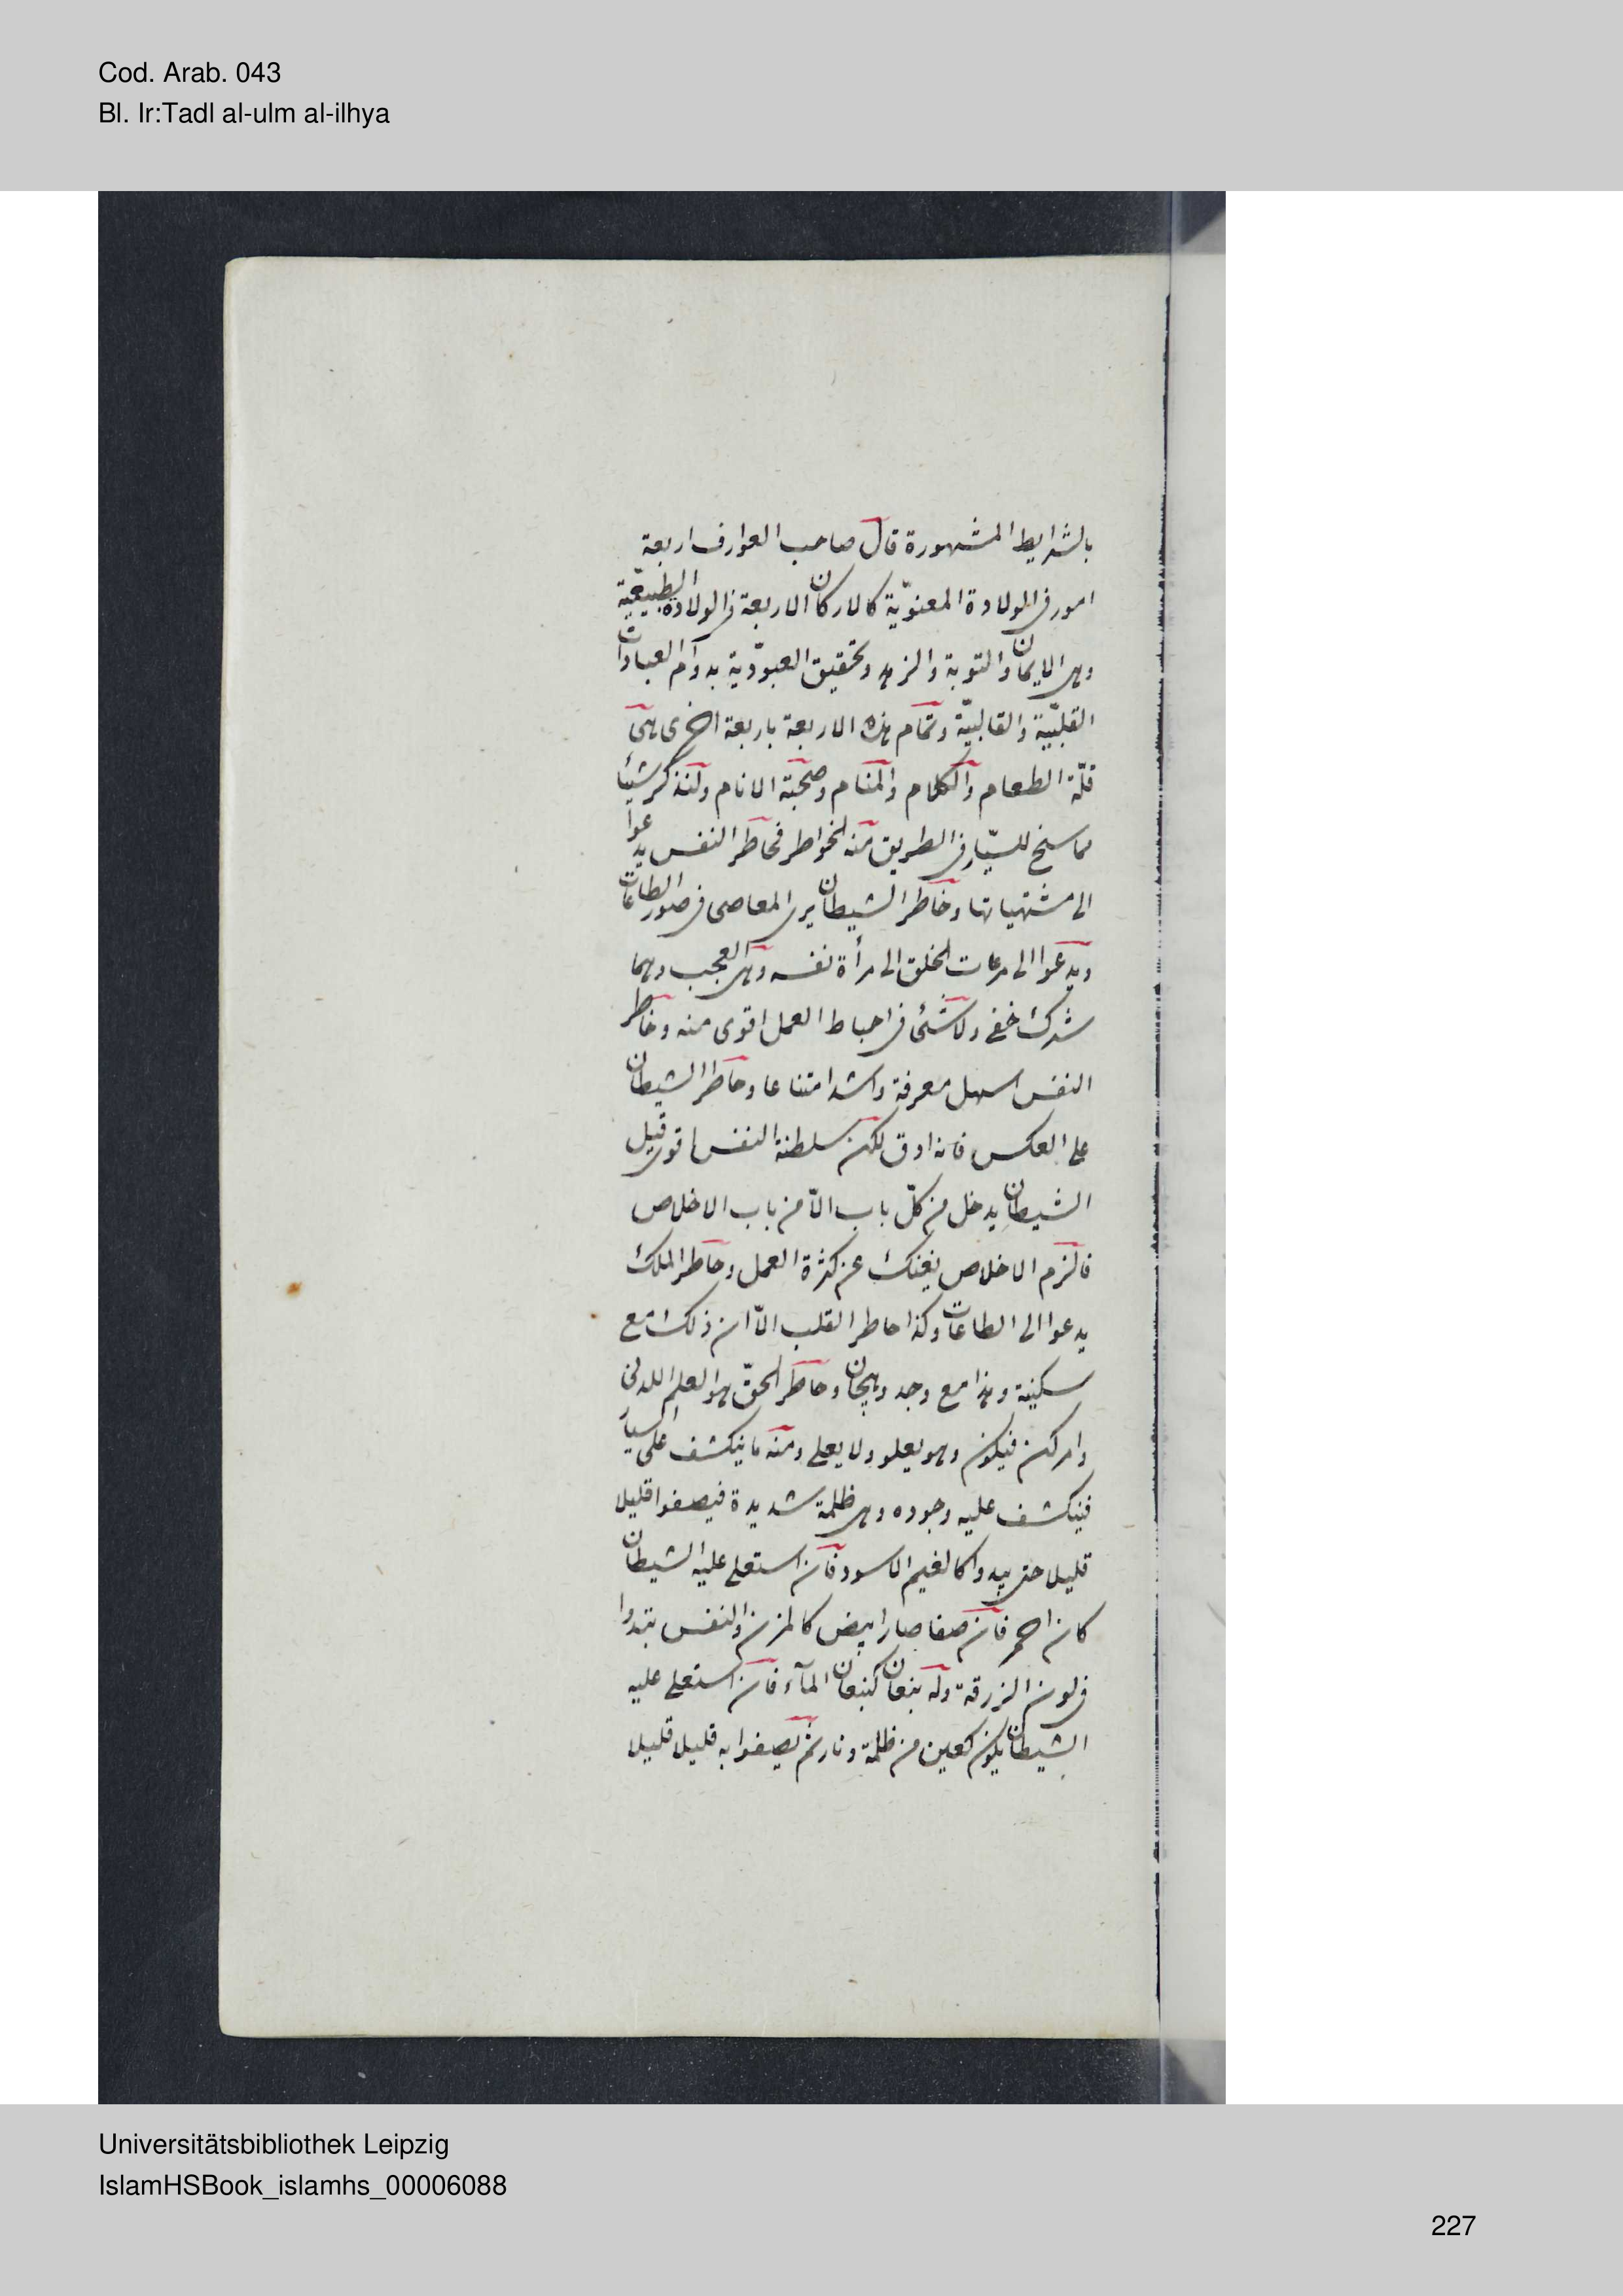 Cod. Arab. 043
Bl. Ir:Tadl al-ulm al-ilhya
بالشرايط المشهورة قال صاحب العوارف اربعة
امور فى الولادة المعنويّة كالاركان الاربعة فى الولادة الطبيعيّة
وهى الايمان والتوبة والزهد وتحقيق العبوديّة بدوام العبادات
القلبيّة والقالبيّة وتمام هذه الاربعة باربعة اخرى هى
قلّة الطعام والكلام والمنام وصحبة الانام ولنذكر شيئا
مما سنح للسيّار فى الطريق منه الخواطر فخاطر النفس يدعوا
الى مشتهياتها وخاطر الشيطان يرى المعاصى فى صور الطاعات
ويدعوا الى مرءات الخلق الى مرأة نفسه وهى العجب وهما
شرك خفى ولا شئ فى احباط العمل اقوى منه وخاطر
النفس اسهل معرفة واشد امتناعا وخاطر الشيطان
على العكس فانه ادق لكن سلطنة النفس اقوى قيل
الشيطان يدخل من كلّ باب الاّ من باب الاخلاص
فالزم الاخلاص يغنك عن كثرة العمل وخاطر الملك
يدعوا الى الطاعات وكذا خاطر القلب الاّ ان ذلك مع
سكينة وهذا مع وجد وهيجان وخاطر الحقّ هو العلم اللدنى
وامر كن فيكون وهو يعلو ولا يعلى ومنه ما ينكشف على السيار
فينكشف عليه وجوده وهى ظلمة شديدة فيصفوا قليلا
قليلا حتى يبدوا كالغيم الاسود فان استعلى عليه الشيطان
كان احمر فان صفا صار ابيض كالمزن والنفس تبدوا
فى لون الزرقة وله نبعان كنبعان المآء فان استعلى عليه
الشيطان يكون كعين من ظلمة ونار ثم يصفوا به قليلا قليلا
Universitätsbibliothek Leipzig
IslamHSBook_islamhs_00006088
227